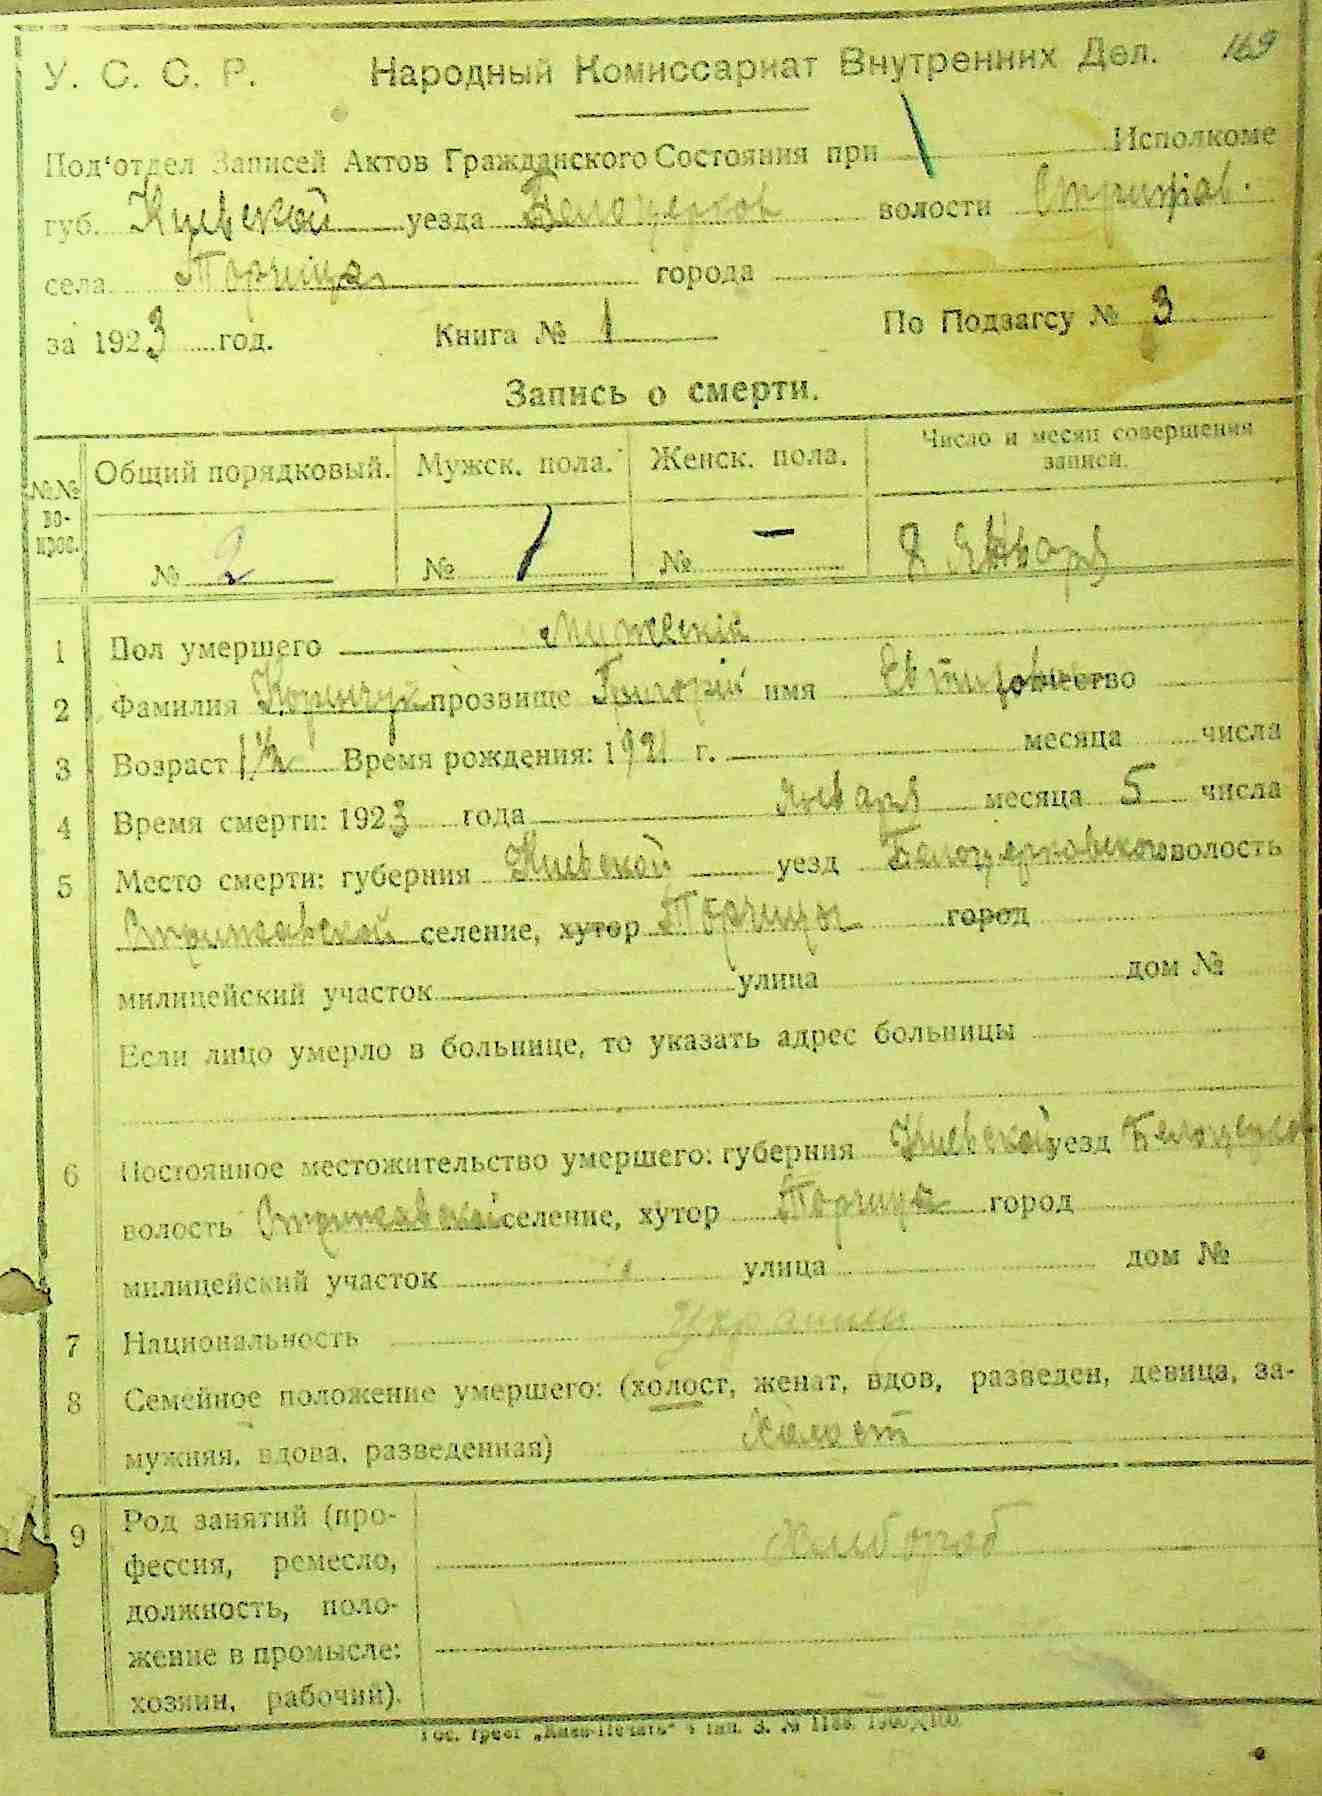 У. С. С. Р. Народный Комиссариат Внутренних Дел. 169
Под‘отдел Записей Актов Гражданского Состояния при Исполкоме
губ. Киевской уезда Белоцерков волости Стрижав.
села Торчица города
за 1923 год. Книга № 1 По Подзагсу № 3
Запись о смерти.
№№ во-прос. Общий порядковый. Мужск. пола. Женск. пола. Число и месяц совершения записи.
№ 2 № 1 № - Января
1 Пол умершего
2 Фамилия прозвище Григорій имя отчество
3 Возраст 1 1/2 Время рождения: 1921 г. месяца числа
4 Время смерти: 1923 года Января месяца 5 числа
5 Место смерти: губерния Киевской уезд Белоцерковского волость
Стрижавской селение, хутор Торчицы город
милицейский участок улица дом №
Если лицо умерло в больнице, то указать адрес больницы
6 Постоянное местожительство умершего: губерния Киевской уезд Белоцерков
волость Стрижавской селение, хутор Торчица город
милицейский участок улица дом №
7 Национальность
8 Семейное положение умершего: (холост, женат, вдов, разведен, девица, за-
мужняя, вдова, разведенная) Холост
9 Род занятий (про-
фессия, ремесло, Хлибороб
должность, поло-
жение в промысле:
хозяин, рабочий).
Гос. трест „Киев-Печать“